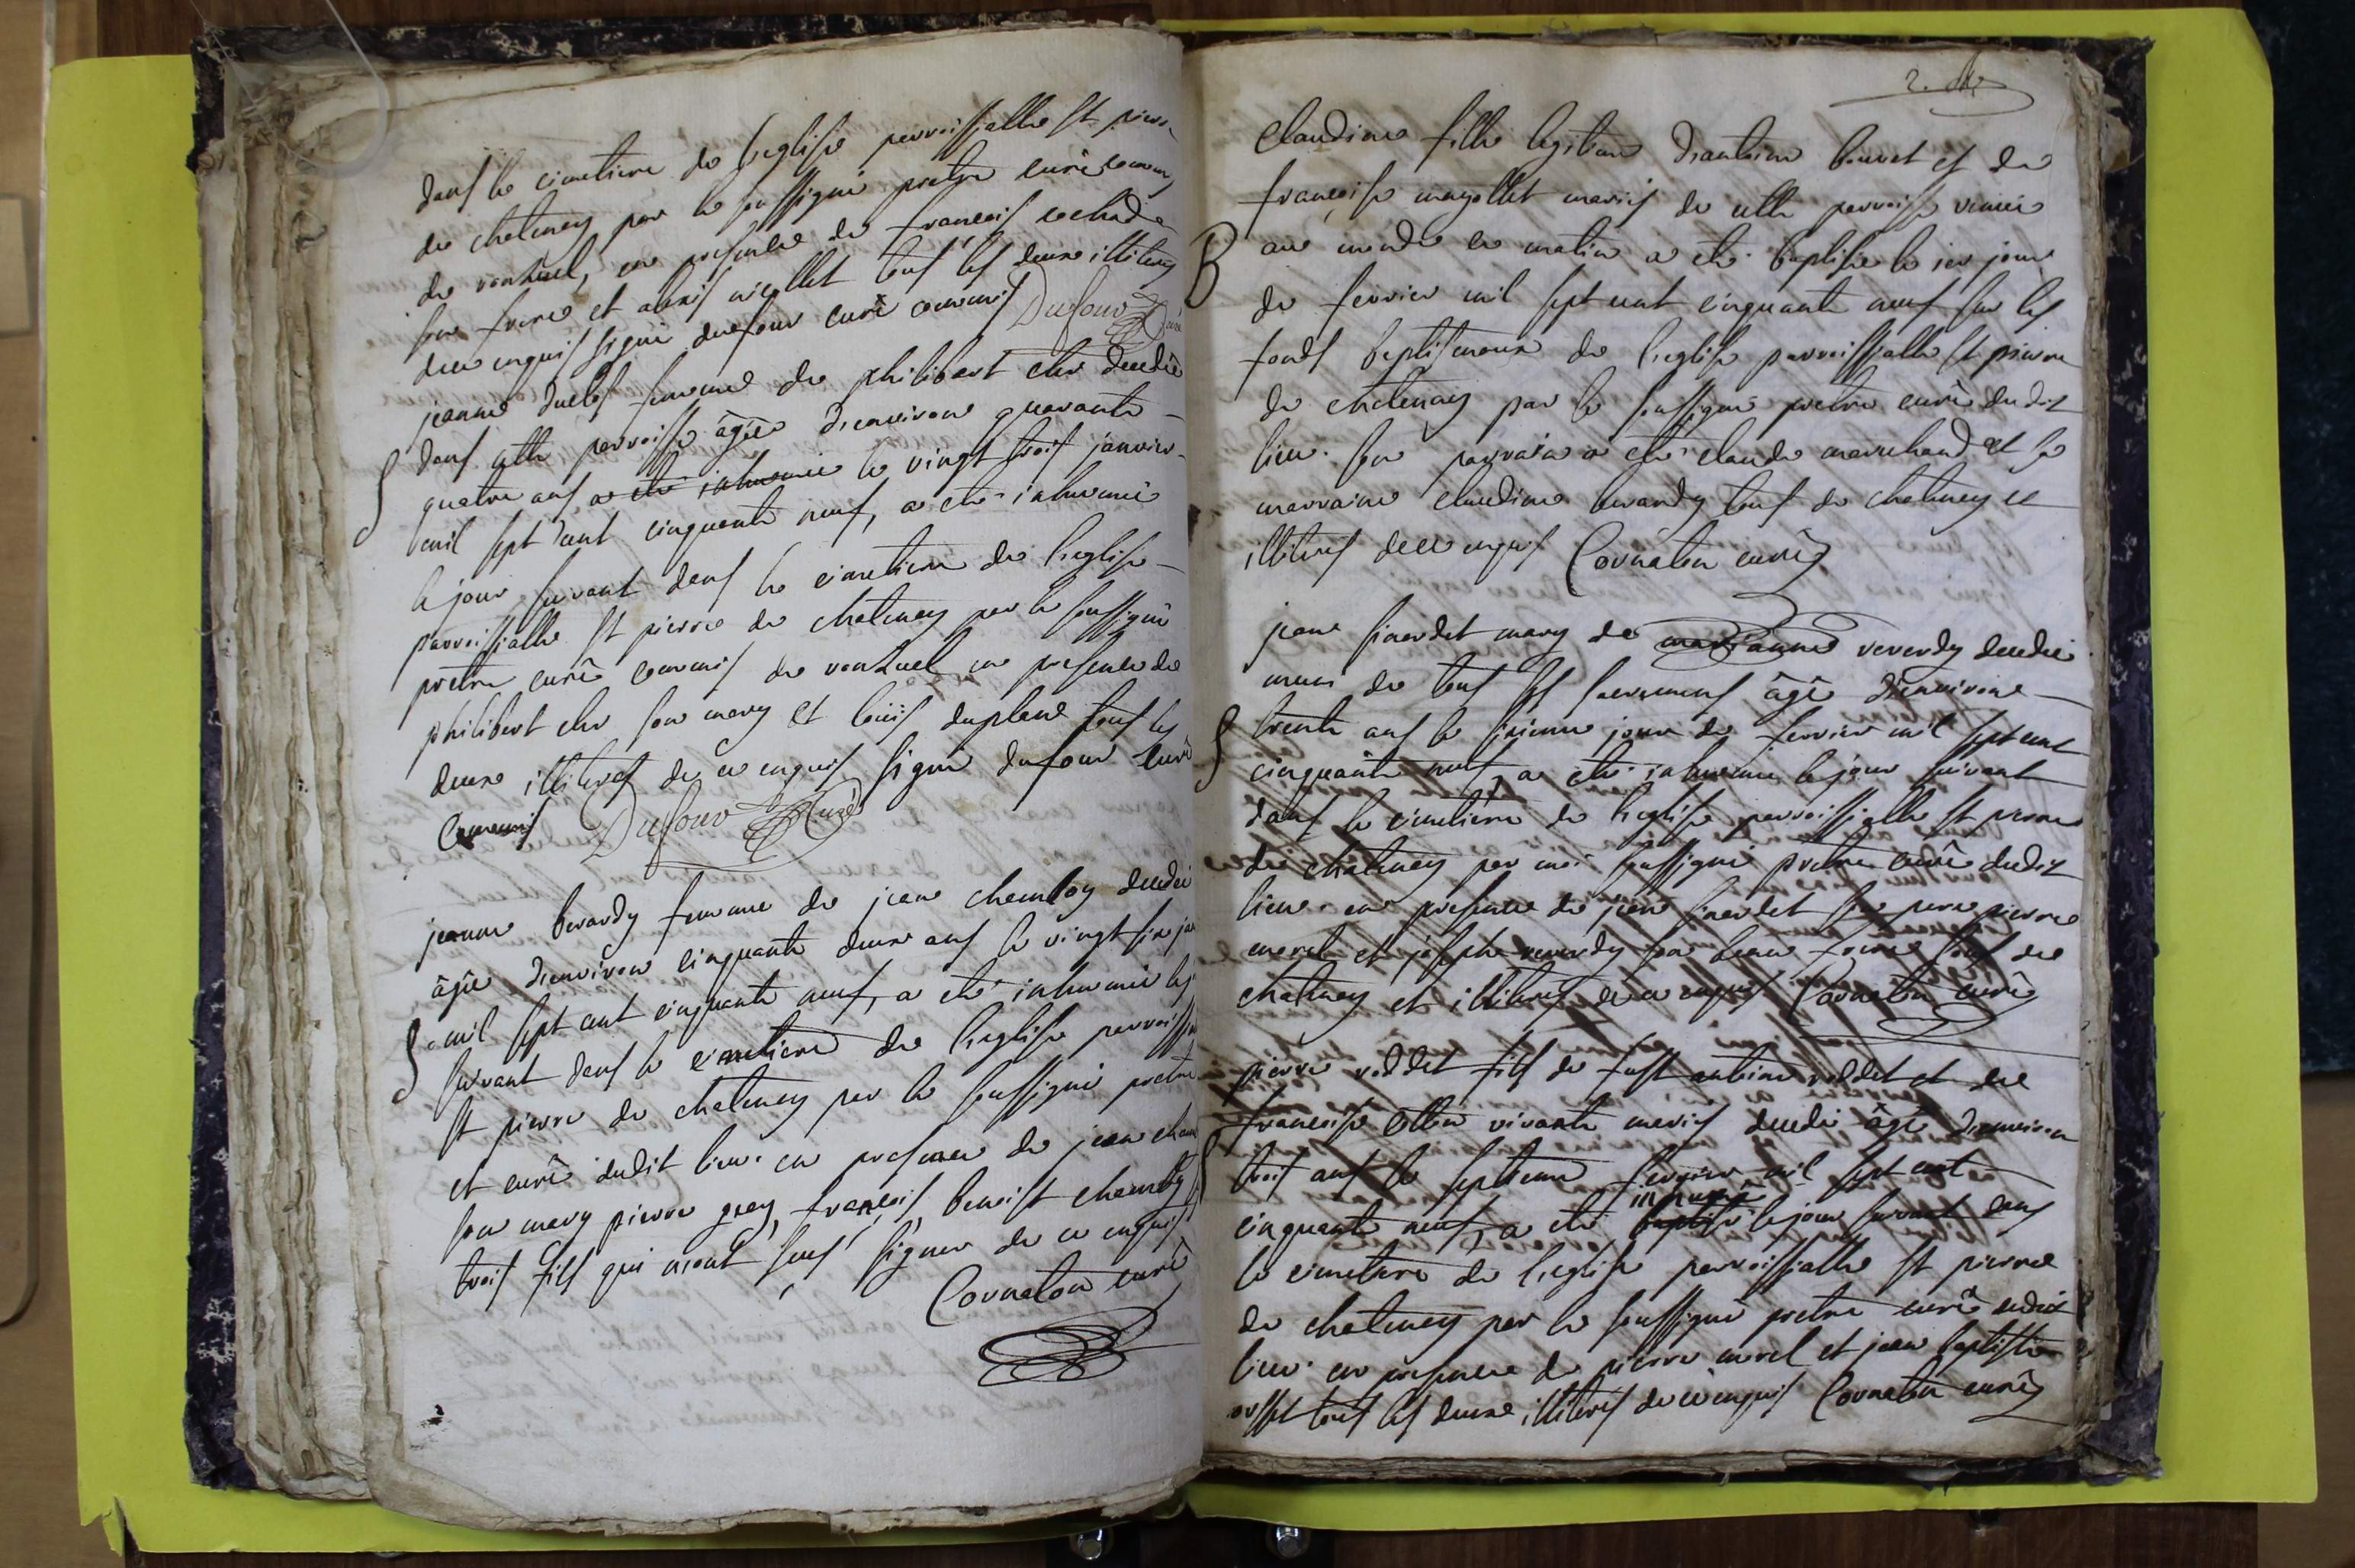 dans le cimetiere de l'eglise parroissialle st pierre
de chatenay par le soussigné pretre curé commis
de vanzuel, en presence de françois cochad
son frere et alexis nicollet tous les deux illiteres
de ce enquis signé dufour curé commis Dufour Curé
jeanne duclos femme de philibert cler decedée
dans cette parroisse âgée d'environ quarante
quatre ans a eté inhumée le vingt trois janvier
mil sept cent cinquante neuf, a eté inhumée
le jour suivant dans le cimetiere de l'eglise
parroissialle st pierre de chatenay par le soussigné
pretre curé commis de vanzuel en presence de
philibert cler son mary et loüis duplene tous les
deux illiteres de ce enquis signé dufour curé
commis Dufour Curé
S
jeanne berardy femme de jean chamboy decedée
âgée d'environ cinquante deux ans le vingt six jan
mil sept cent cinquante neuf, a eté inhumée le j
suivant dans le cimetiere de l'eglise parroiss
st pierre de chatenay par le soussigné pretre
et curé dudit lieu. en presence de jean cham
son mary pierre françois, benoist chamboy
trois fils qui n'ont sceus signer de ce enquis
Cornaton curé
S
2.
Claudine fille legitime d'antoine bouvet et de
françoise mayollet mariés de cette parroisse venüe
au monde ce matin a eté baptisée le 1er jour
de fevrier mil sept cent cinquante neuf sur les
fonds baptismaux de l'eglise parroissialle st pierre
de chatenay par le soussigné pretre curé dudit
lieu. son parrain a eté claude marechand et sa
marraine claudine berardy tous de chatenay et
illiteres de ce enquis Cornaton curé
B
jean sirerdet mary de marianne reverdy decedé
muni de tous les sacremens âgé d'environ
trente ans le sixieme jour de fevrier mil sept cent
cinquante neuf, a eté inhumé le jour suivant
dans le cimetiere de l'eglise parroissialle st pierre
de chatenay par moi soussigné pretre curé dudit
lieu. en presence de jean sirerdet son pere pierre
morel et joseph reverdy son beau frere tous de
chatenay et illiteres de ce enquis Cornaton curé
S
pierre voldet fils de fust antoine voldet et de
françoise vivante mariés decedé âgé d'environ
trois ans le septieme fevrier mil sept cent
cinquante neuf, a eté baptisé inhumé le jour suivant dans
le cimetiere de l'eglise parroissialle st pierre
de chatenay par le soussigné pretre curé dudit
lieu. en presence de pierre morel et jean baptiste
tous les deux illiteres de ce enquis Cornaton curé
S